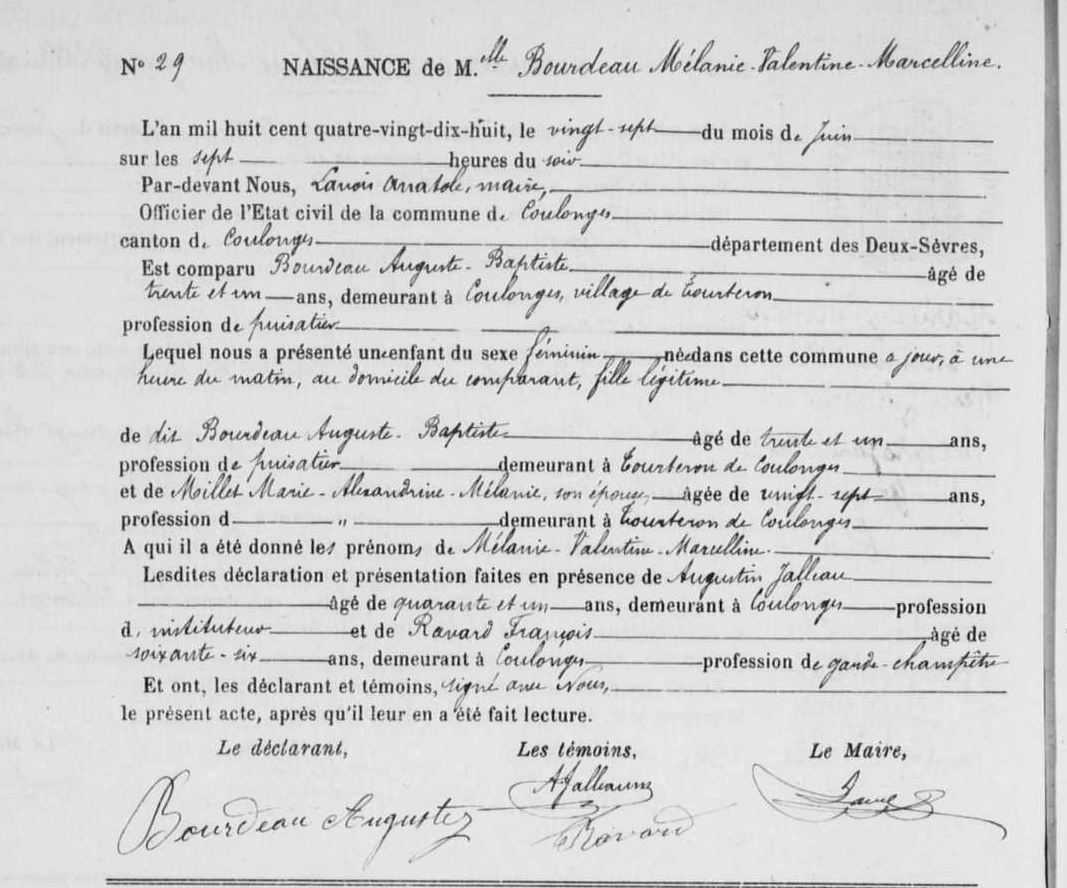 N° 29 NAISSANCE de M.elle Bourdeau Mélanie-Valentine-Marcelline.
L'an mil huit cent quatre-vingt-dix-huit, le vingt-sept du mois de Juin
sur les sept heures du soir
Par-devant Nous, Anatole, maire,
Officier de l'Etat civil de la commune de Coulonges
canton de Coulonges département des Deux-Sèvres,
Est comparu Bourdeau Auguste-Baptiste âgé de
trente et un ans, demeurant à Coulonges, village de Tourteron
profession de puisatier
Lequel nous a présenté une enfant du sexe féminin née dans cette commune ce jour, à une
heure du matin, au domicile du comparant, fille légitime
de dit Bourdeau Auguste-Baptiste âgé de trente et un ans,
profession de puisatier demeurant à Tourteron de Coulonges
et de Millet Marie-Alexandrine-Mélanie, son épouse, âgée de vingt-sept ans,
profession d " demeurant à Tourteron de Coulonges
A qui il a été donné les prénoms de Mélanie-Valentine-Marcelline.
Lesdites déclaration et présentation faites en présence de Augustin Jalleau
âgé de quarante et un ans, demeurant à Coulonges profession
d'instituteur et de Ravard François âgé de
soixante-six ans, demeurant à Coulonges profession de garde-champêtre
Et ont, les déclarant et témoins, signé avec Nous,
le présent acte, après qu'il leur en a été fait lecture.
Le déclarant, Les témoins, Le Maire,
AJalleau
Bourdeau Auguste Ravard